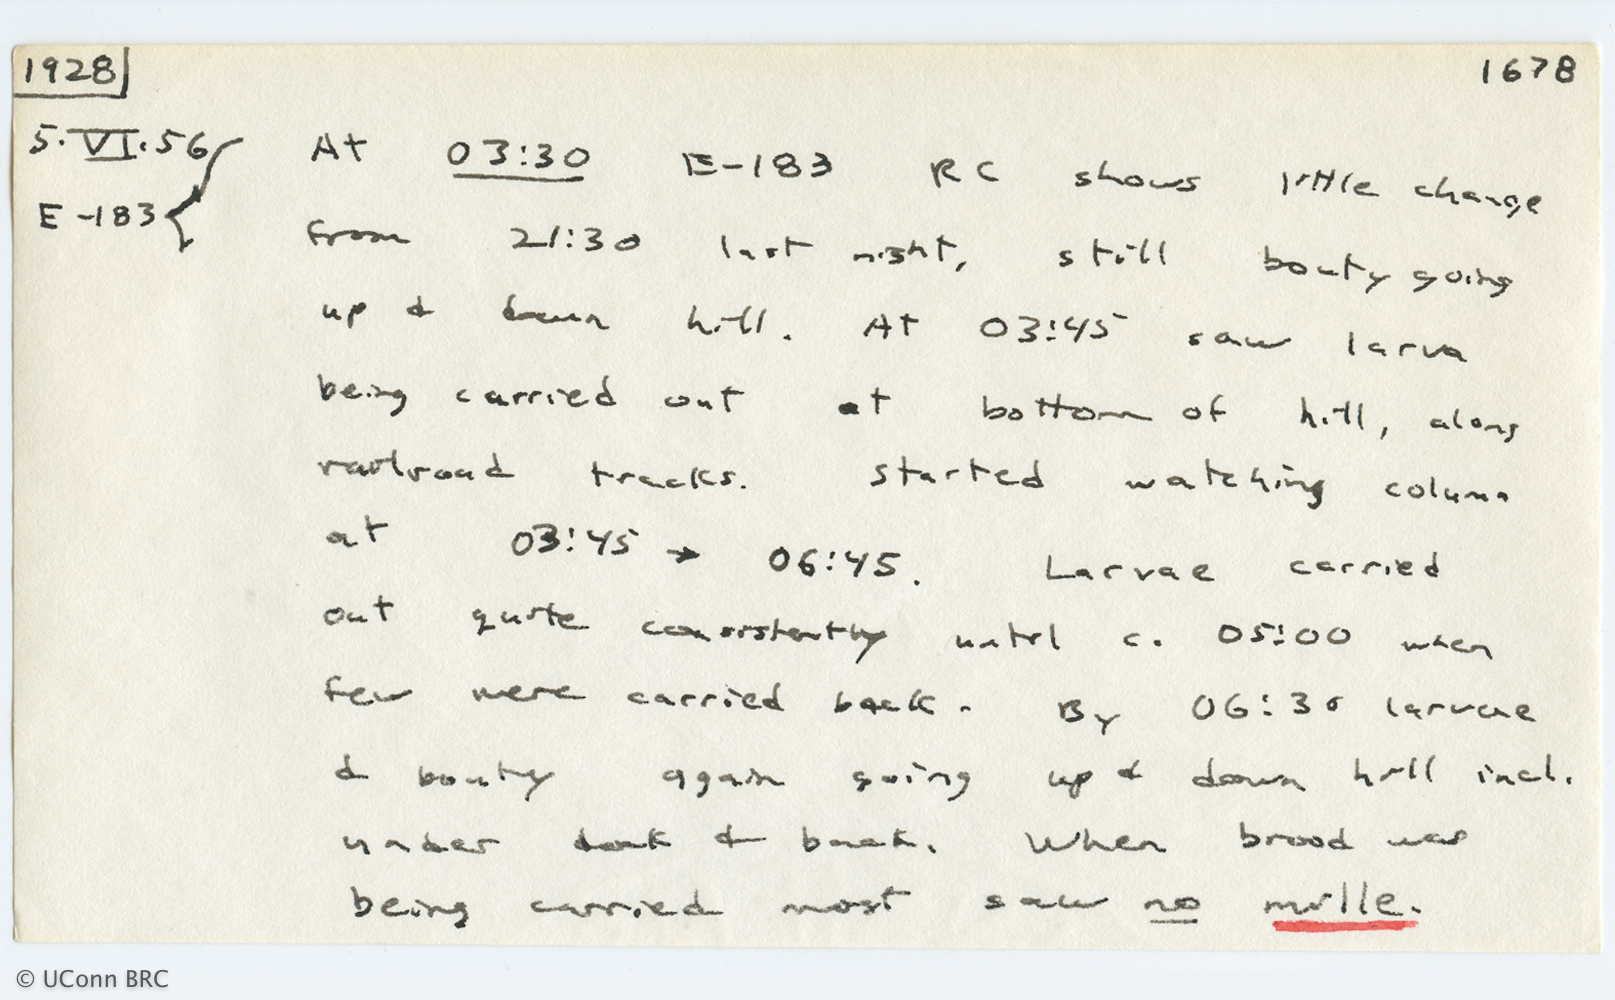 1928
1678
5.VI.56
E-183
At 03:30 E-183 RC shows little change
from 21:30 last night, still booty going
up & down hill. At 03:45 saw larva
being carried out at bottom of hill, along
railroad tracks. Started watching column
at 03:45 → 06:45. Larvae carried
out quite consistently until c. 05:00 when
few were carried back. By 06:30 larvae
& booty again going up & down hill incl.
under & back. When brood was
being carried most saw no mille.
© UConn BRC